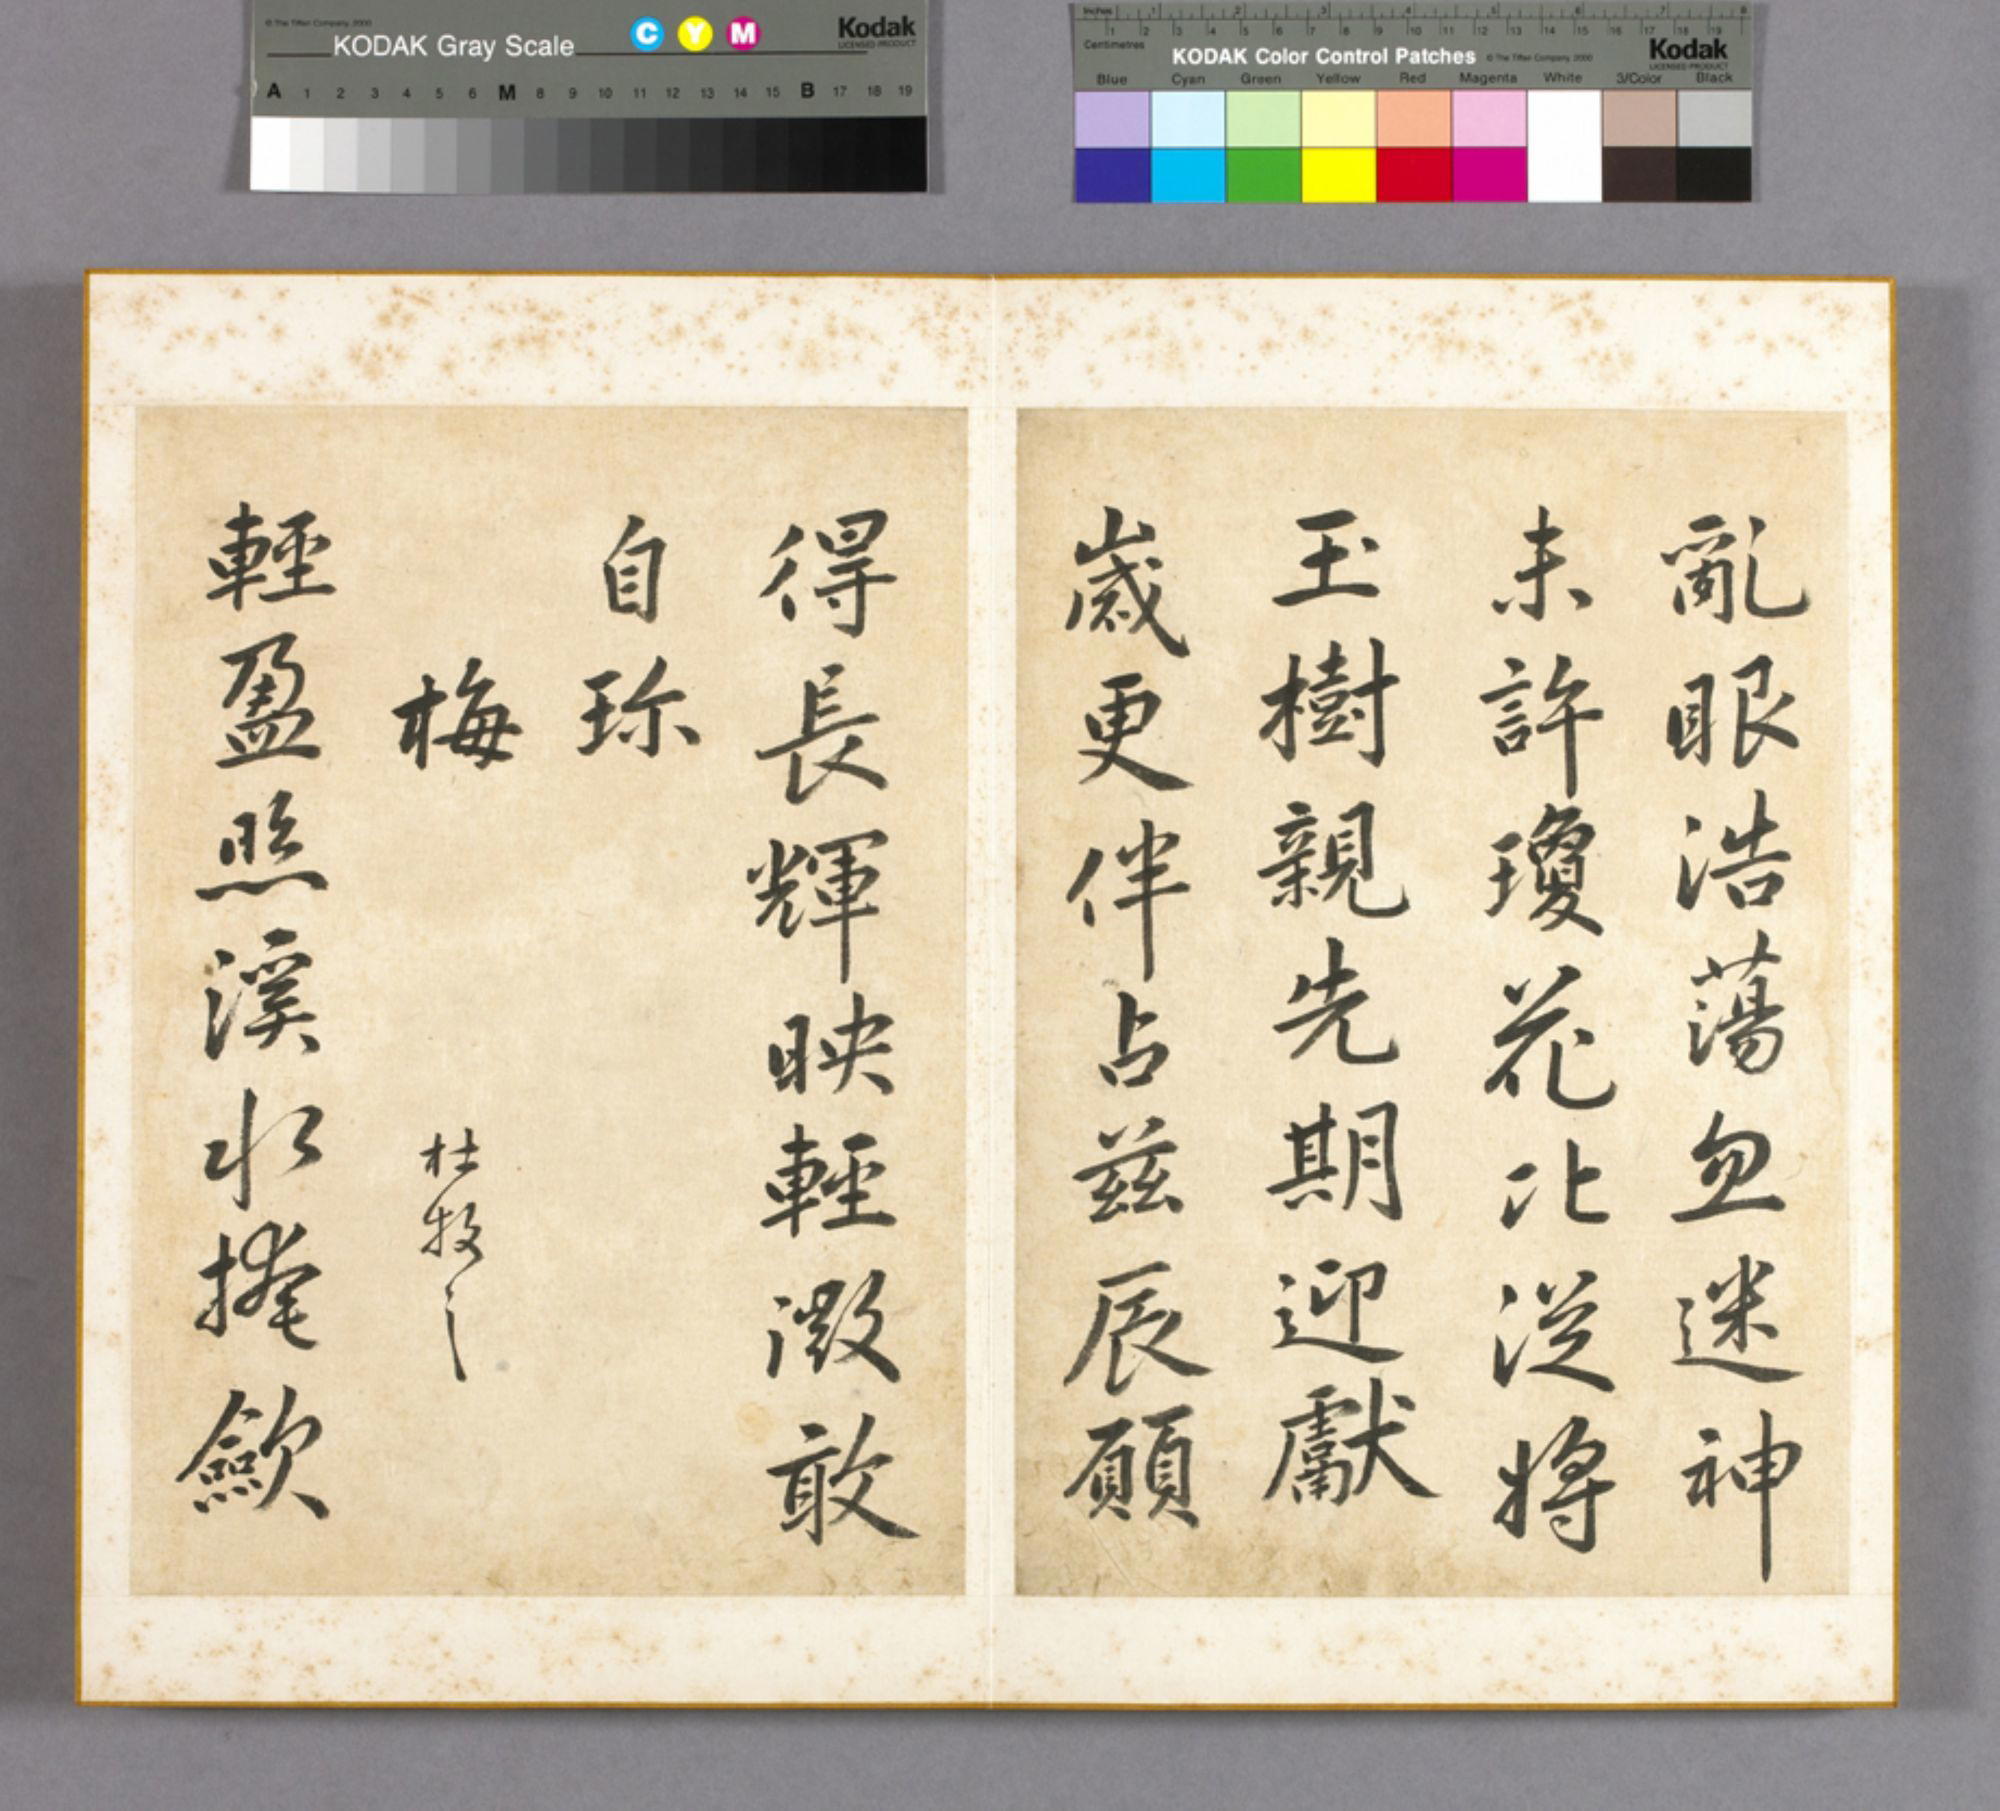 © The Tiffen Company, 2000
KODAK Gray Scale
C Y M
Kodak
LICENSED PRODUCT
A 1 2 3 4 5 6 M 8 9 10 11 12 13 14 15 B 17 18 19
Inches 1 2 3 4 5 6 7 8
Centimetres 1 2 3 4 5 6 7 8 9 10 11 12 13 14 15 16 17 18 19
KODAK Color Control Patches
© The Tiffen Company, 2000
Kodak
LICENSED PRODUCT
Blue Cyan Green Yellow Red Magenta White 3/Color Black
亂眼浩蕩忽迷神
未許瓊花比從將
玉樹親先期迎獻
歲更伴占茲辰願
得長輝映輕澂敢
自珎
梅 杜牧之
輕盈照溪水掩歛